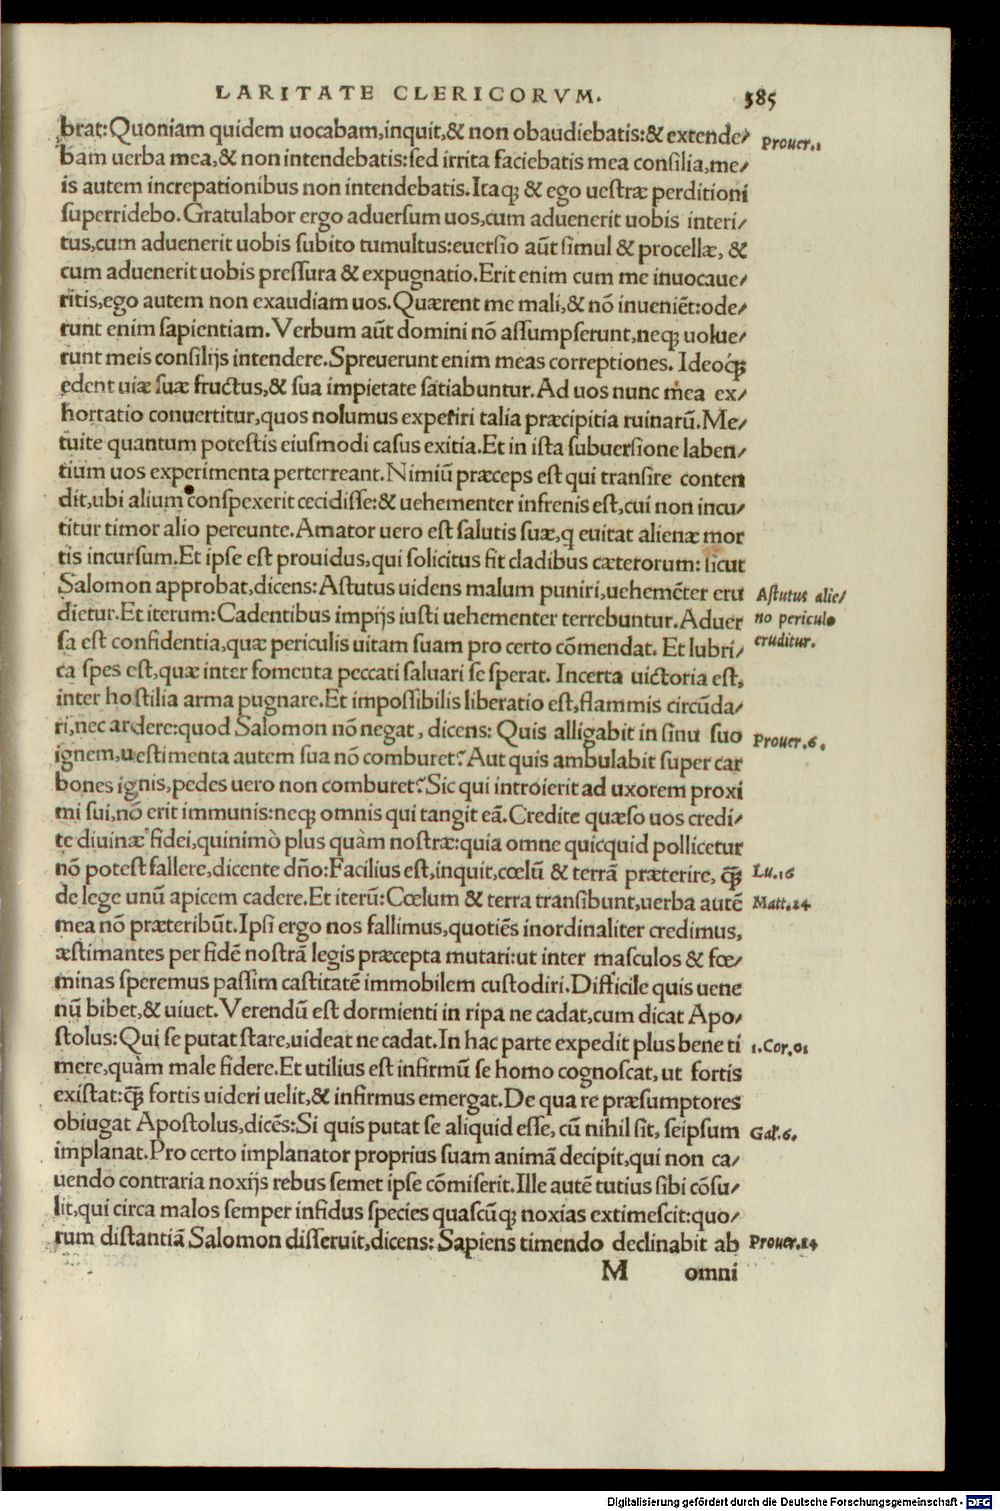 LARITATE CLERICORVM. 385
brat:Quoniam quidem uocabam,inquit,& non obaudiebatis:& extende/ Prouer.1
bam uerba mea,& non intendebatis:sed irrita faciebatis mea consilia,me/
is autem increpationibus non intendebatis.Itaq; & ego uestræ perditioni
superridebo.Gratulabor ergo aduersum uos,cum aduenerit uobis interi/
tus,cum aduenerit uobis subito tumultus:euersio aūt simul & procellæ, &
cum aduenerit uobis pressura & expugnatio.Erit enim cum me inuocaue/
ritis,ego autem non exaudiam uos.Quærent me mali,& nō inueniēt:ode/
runt enim sapientiam.Verbum aūt domini nō assumpserunt,neq; uolue/
runt meis consilijs intendere.Spreuerunt enim meas correptiones. Ideoq́;
edent uiæ suæ fructus,& sua impietate satiabuntur.Ad uos nunc mea ex/
hortatio conuertitur,quos nolumus experiri talia præcipitia ruinarū.Me/
tuite quantum potestis eiusmodi casus exitia.Et in ista subuersione laben/
tium uos experimenta perterreant.Nimiū præceps est qui transire conten
dit,ubi alium conspexerit cecidisse:& uehementer infrenis est,cui non incu/
titur timor alio pereunte.Amator uero est salutis suæ,q euitat alienæ mor
tis incursum.Et ipse est prouidus,qui solicitus fit cladibus cæterorum: sicut
Salomon approbat,dicens:Astutus uidens malum puniri,uehemēter eru Astutus alie/
dietur.Et iterum:Cadentibus impijs iusti uehementer terrebuntur.Aduer no periculo
sa est confidentia,quæ periculis uitam suam pro certo cōmendat. Et lubri/ eruditur.
ca spes est,quæ inter fomenta peccati saluari se sperat. Incerta uictoria est,
inter hostilia arma pugnare.Et impossibilis liberatio est,flammis circūda/
ri,nec ardere:quod Salomon nō negat, dicens: Quis alligabit in sinu suo Prouer.6.
ignem,uestimenta autem sua nō comburet?Aut quis ambulabit super car
bones ignis,pedes uero non comburet?Sic qui introierit ad uxorem proxi
mi sui,nō erit immunis:neq; omnis qui tangit eā.Credite quæso uos credi/
te diuinæ fidei,quinimò plus quàm nostræ:quia omne quicquid pollicetur
nō potest fallere,dicente dño:Facilius est,inquit,cœlū & terrā præterire, q̃; Lu.16
de lege unū apicem cadere.Et iterū:Cœlum & terra transibunt,uerba autē Matt.24
mea nō præteribūt.Ipsi ergo nos fallimus,quotiēs inordinaliter credimus,
æstimantes per fidē nostrā legis præcepta mutari:ut inter masculos & fœ/
minas speremus passim castitatē immobilem custodiri.Difficile quis uene
nū bibet,& uiuet.Verendū est dormienti in ripa ne cadat,cum dicat Apo/
stolus:Qui se putat stare,uideat ne cadat.In hac parte expedit plus bene ti 1.Cor.01
mere,quàm male fidere.Et utilius est infirmū se homo cognoscat, ut fortis
existat:q̃; fortis uideri uelit,& infirmus emergat.De qua re præsumptores
obiugat Apostolus,dicēs:Si quis putat se aliquid esse, cū nihil sit, seipsum Gal.6.
implanat.Pro certo implanator proprius suam animā decipit,qui non ca/
uendo contraria noxijs rebus semet ipse cōmiserit.Ille autē tutius sibi cōsu/
lit,qui circa malos semper infidus species quascūq; noxias extimescit:quo/
rum distantiā Salomon disseruit,dicens: Sapiens timendo declinabit ab Prouer.14
M omni
Digitalisierung gefördert durch die Deutsche Forschungsgemeinschaft - DFG